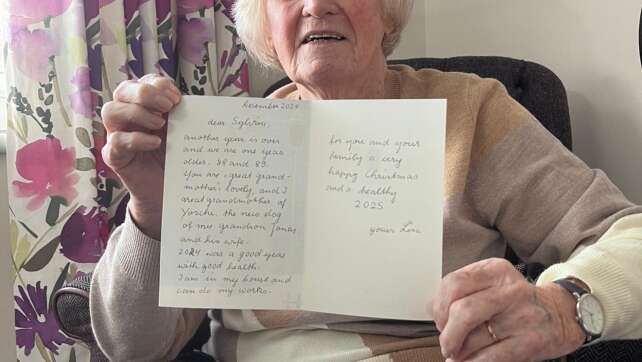 December 2024
dear Sylvia,
another year is over
and we are one year
older. 88 and 89.
You are great grand-
mother's lovely, and I
great grandmother of
the new dog
of my grandson Jonas
and his wife.
2024 was a good year
with good health.
I am in my house and
can do my works.
for you and your
family a very
happy Christmas
and a healthy
2025
yours